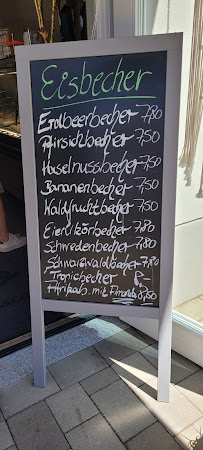 Eisbecher
Erdbeerbecher 7,80
Pfirsichbecher 7,50
Haselnussbecher 7,50
Bananenbecher 7,50
Waldfruchtbecher 7,50
Eierlikörbecher 7,80
Schwedenbecher 7,80
Schwarzwaldbecher 7,80
Tropicbecher 8,-
Afrikab. mit Amarula 8,50